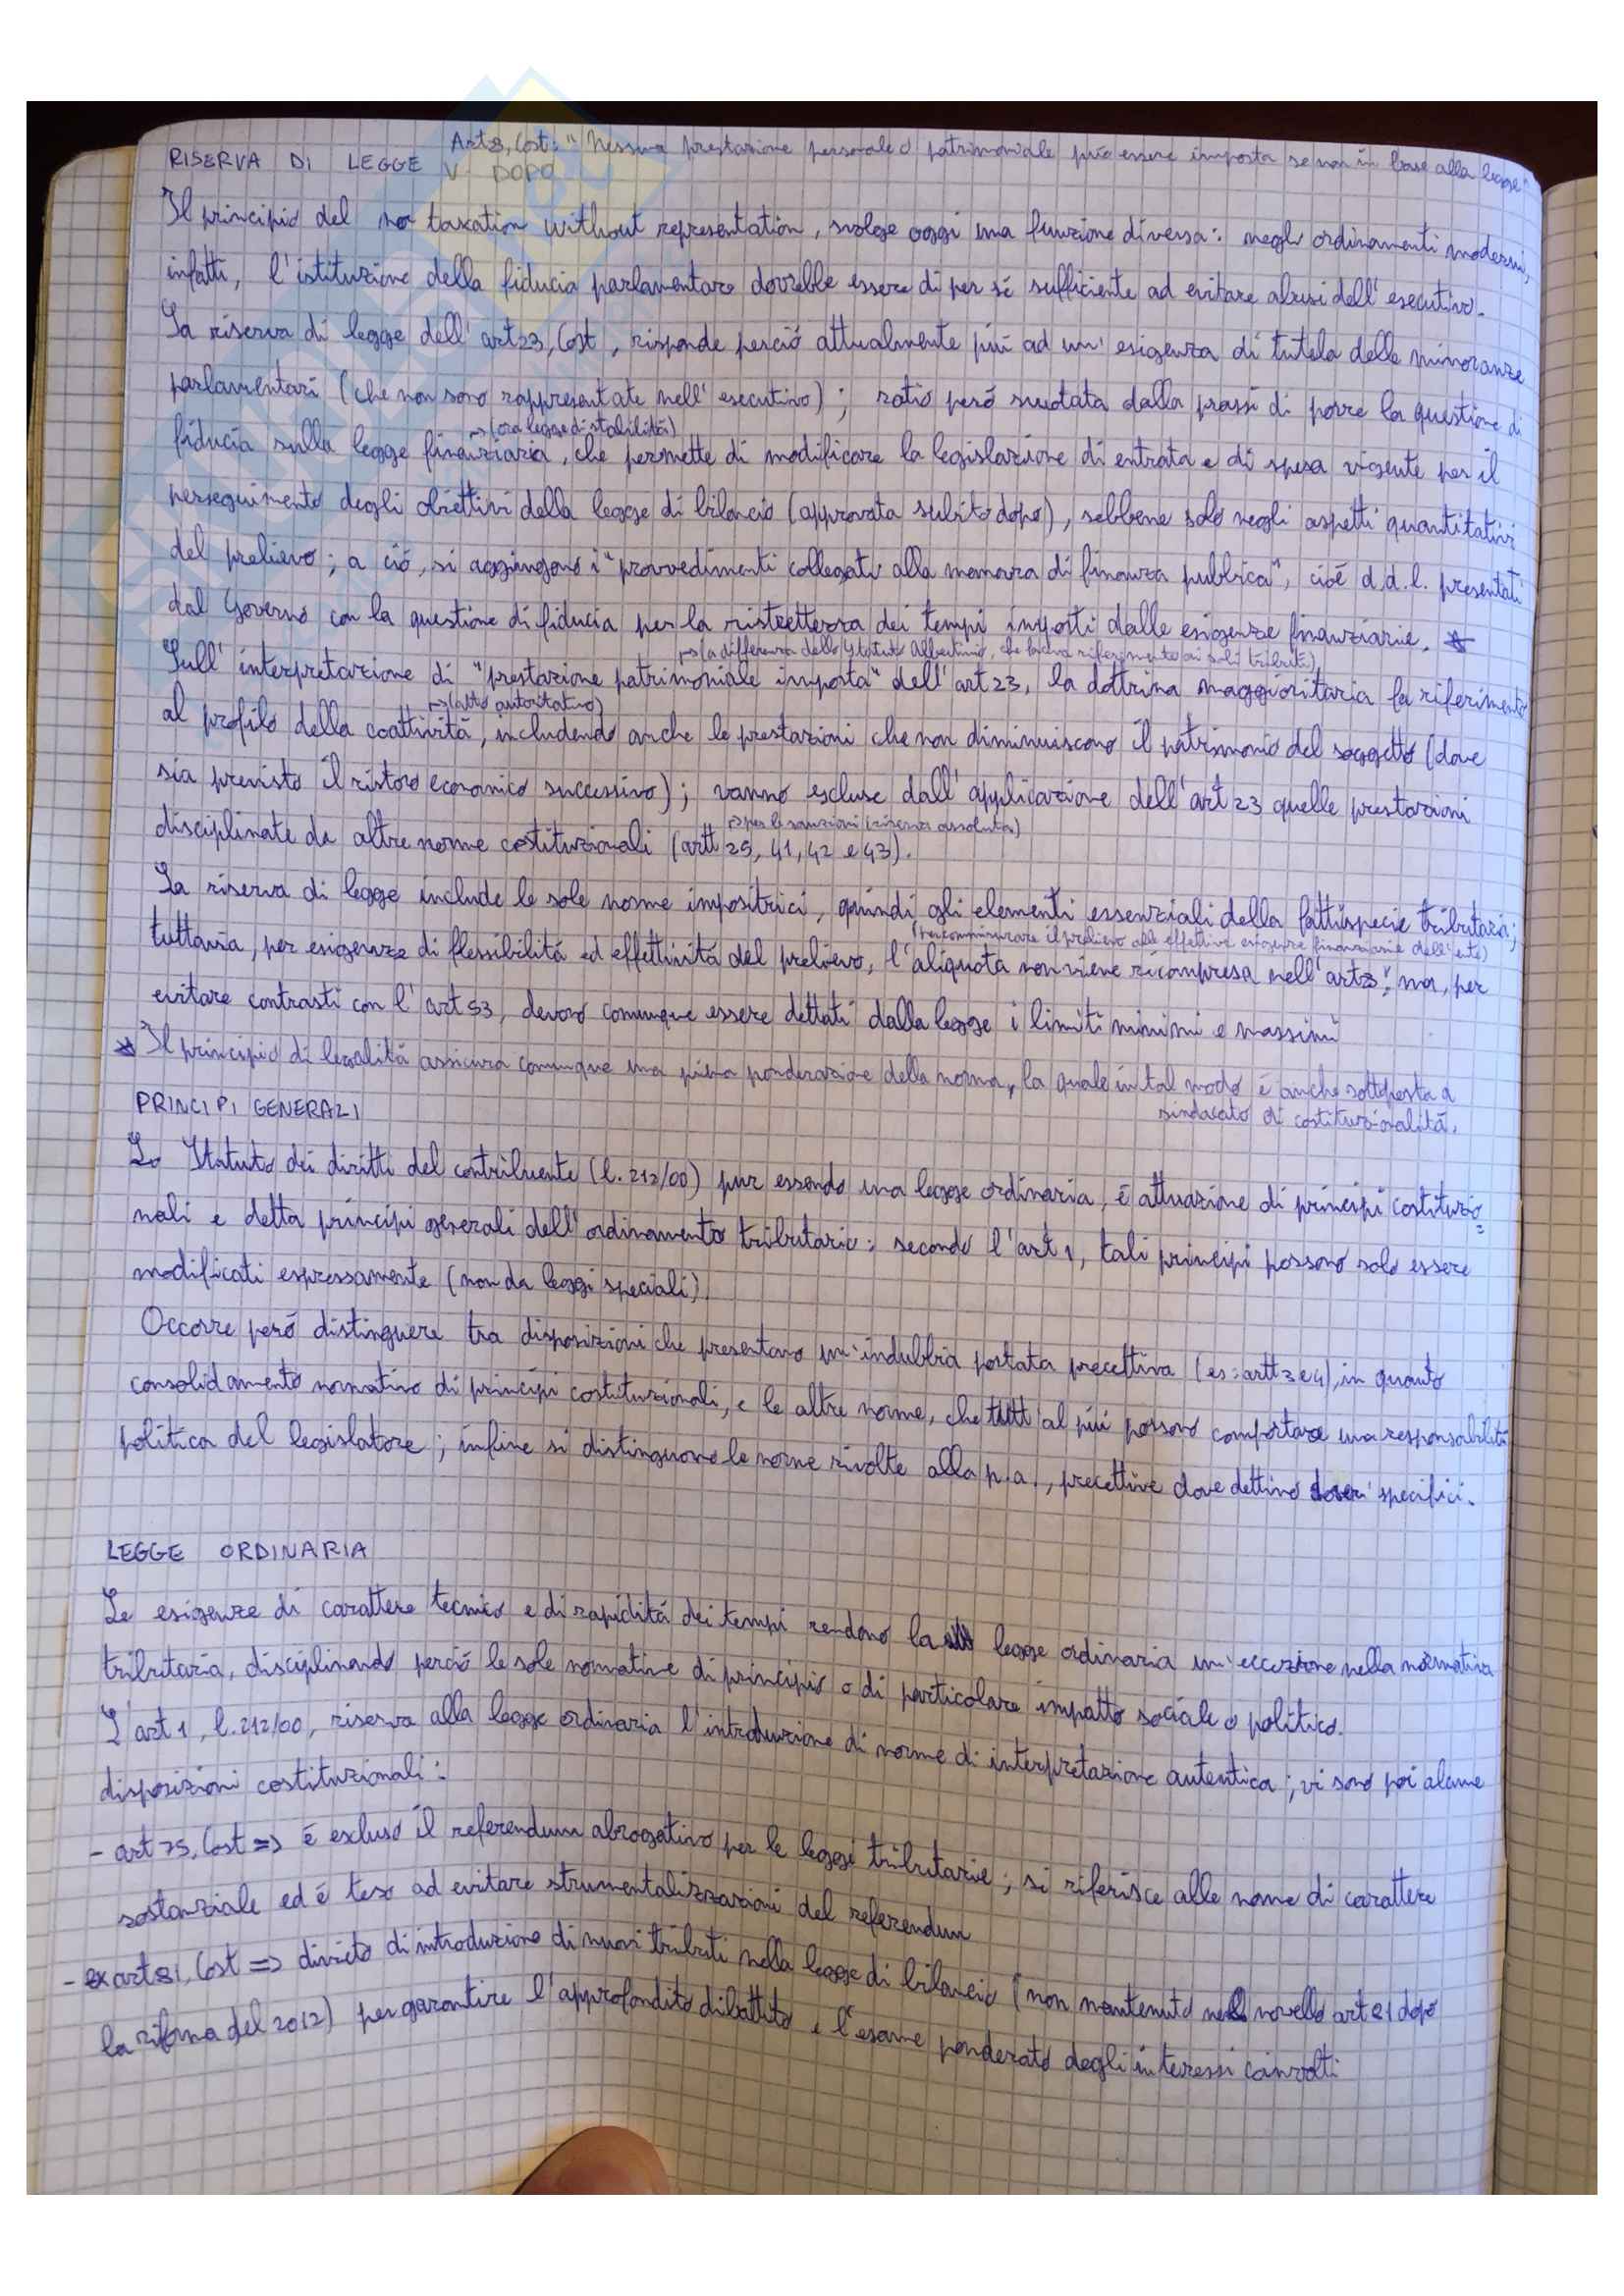 Art 23, Cost: "Nessuna prestazione personale o patrimoniale può essere imposta se non in base alla legge"
RISERVA DI LEGGE V. DOPO
Il principio del no taxation without representation, svolge oggi una funzione diversa: negli ordinamenti moderni,
infatti, l'istituzione della fiducia parlamentare dovrebbe essere di per sé sufficiente ad evitare abusi dell'esecutivo.
La riserva di legge dell'art 23, Cost, risponde perció attualmente piú ad un'esigenza di tutela delle minoranze
parlamentari (che non sono rappresentate nell'esecutivo); ratio peró svuotata dalla prassi di porre la questione di
→(ora legge di stabilitá)
fiducia sulla legge finanziaria, che permette di modificare la legislazione di entrata e di spesa vigente per il
perseguimento degli obiettivi della legge di bilancio (approvata subito dopo), sebbene solo negli aspetti quantitativi
del prelievo; a ció, si aggiungono i "provvedimenti collegati alla manovra di finanza pubblica", cioé d.d.l. presentati
dal Governo con la questione di fiducia per la ristrettezza dei tempi imposti dalle esigenze finanziarie. *
→(a differenza dello Statuto Albertino, che faceva riferimento ai soli tributi)
Sull'interpretazione di "prestazione patrimoniale imposta" dell'art 23, la dottrina maggioritaria fa riferimento
→(atto autoritativo)
al profilo della coattivitá, includendo anche le prestazioni che non diminuiscono il patrimonio del soggetto (dove
sia previsto il ristoro economico successivo); vanno escluse dall'applicazione dell'art 23 quelle prestazioni
→per le sanzioni (riserva assoluta)
disciplinate da altre norme costituzionali (artt 25, 41, 42 e 43).
La riserva di legge include le sole norme impositrici, quindi gli elementi essenziali della fattispecie tributaria;
(per commisurare il prelievo alle effettive esigenze finanziarie dell'ente)
tuttavia, per esigenze di flessibilitá ed effettivitá del prelievo, l'aliquota non viene ricompresa nell'art 23, ma, per
evitare contrasti con l'art 53, devono comunque essere dettati dalla legge i limiti minimi e massimi
* Il principio di legalitá assicura comunque una prima ponderazione della norma, la quale in tal modo é anche sottoposta a
sindacato di costituzionalitá.
PRINCIPI GENERALI
Lo Statuto dei diritti del contribuente (l. 212/00) pur essendo una legge ordinaria, é attuazione di principi costituzio=
nali e detta principi generali dell'ordinamento tributario: secondo l'art 1, tali principi possono solo essere
modificati espressamente (non da leggi speciali).
Occorre peró distinguere tra disposizioni che presentano un'indubbia portata precettiva (es: artt 3 e 4), in quanto
consolidamento normativo di principi costituzionali, e le altre norme, che tutt'al piú possono comportare una responsabilitá
politica del legislatore; infine si distinguono le norme rivolte alla p.a., precettive dove dettino doveri specifici.
LEGGE ORDINARIA
Le esigenze di carattere tecnico e di rapiditá dei tempi rendono la legge ordinaria un'eccezione nella normativa
tributaria, disciplinando perció le sole normative di principio o di particolare impatto sociale o politico.
L'art 1, l. 212/00, riserva alla legge ordinaria l'introduzione di norme di interpretazione autentica; vi sono poi alcune
disposizioni costituzionali:
- art 75, Cost => é escluso il referendum abrogativo per le leggi tributarie; si riferisce alle norme di carattere
sostanziale ed é teso ad evitare strumentalizzazioni del referendum
- ex art 81, Cost => divieto di introduzione di nuovi tributi nella legge di bilancio (non mantenuto nel novello art 81 dopo
la riforma del 2012) per garantire l'approfondito dibattito e l'esame ponderato degli interessi coinvolti